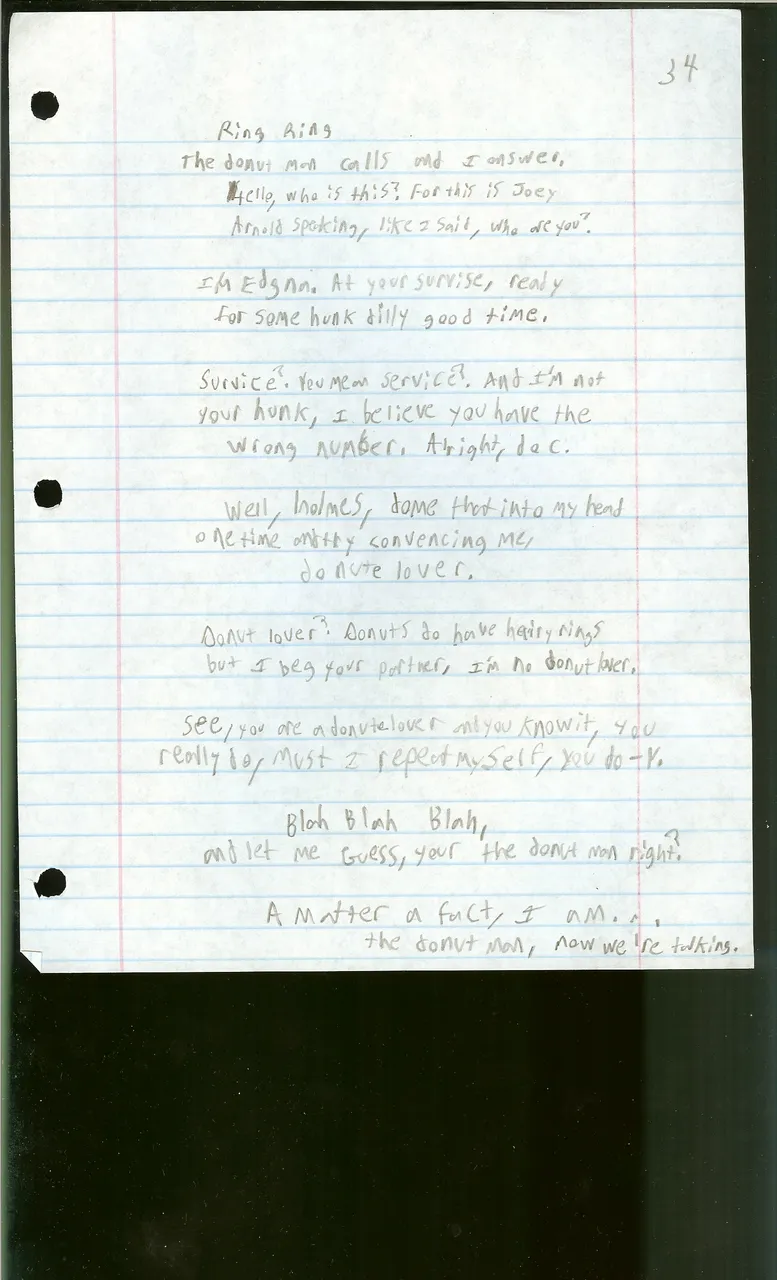 34
Ring Ring
The donut man calls and I answer.
Hello, who is this? For this is Joey
Arnold speaking, like I said, who are you?
I'm Edgna. At your survise, ready
for some hunk dilly good time.
Survice? You mean service? And I'm not
your hunk, I believe you have the
wrong number. Alright, doc.
Well, holmes, dome that into my head
one time and try convencing me,
donute lover.
Donut lover? Donuts do have heairy rings
but I beg your partner, I'm no donut lover.
See, you are a donute lover and you know it, you
really do, must I repeat myself, you do-Y.
Blah Blah Blah,
and let me Guess, your the donut man right?
A matter a fact, I am...
the donut man, now we're talking.